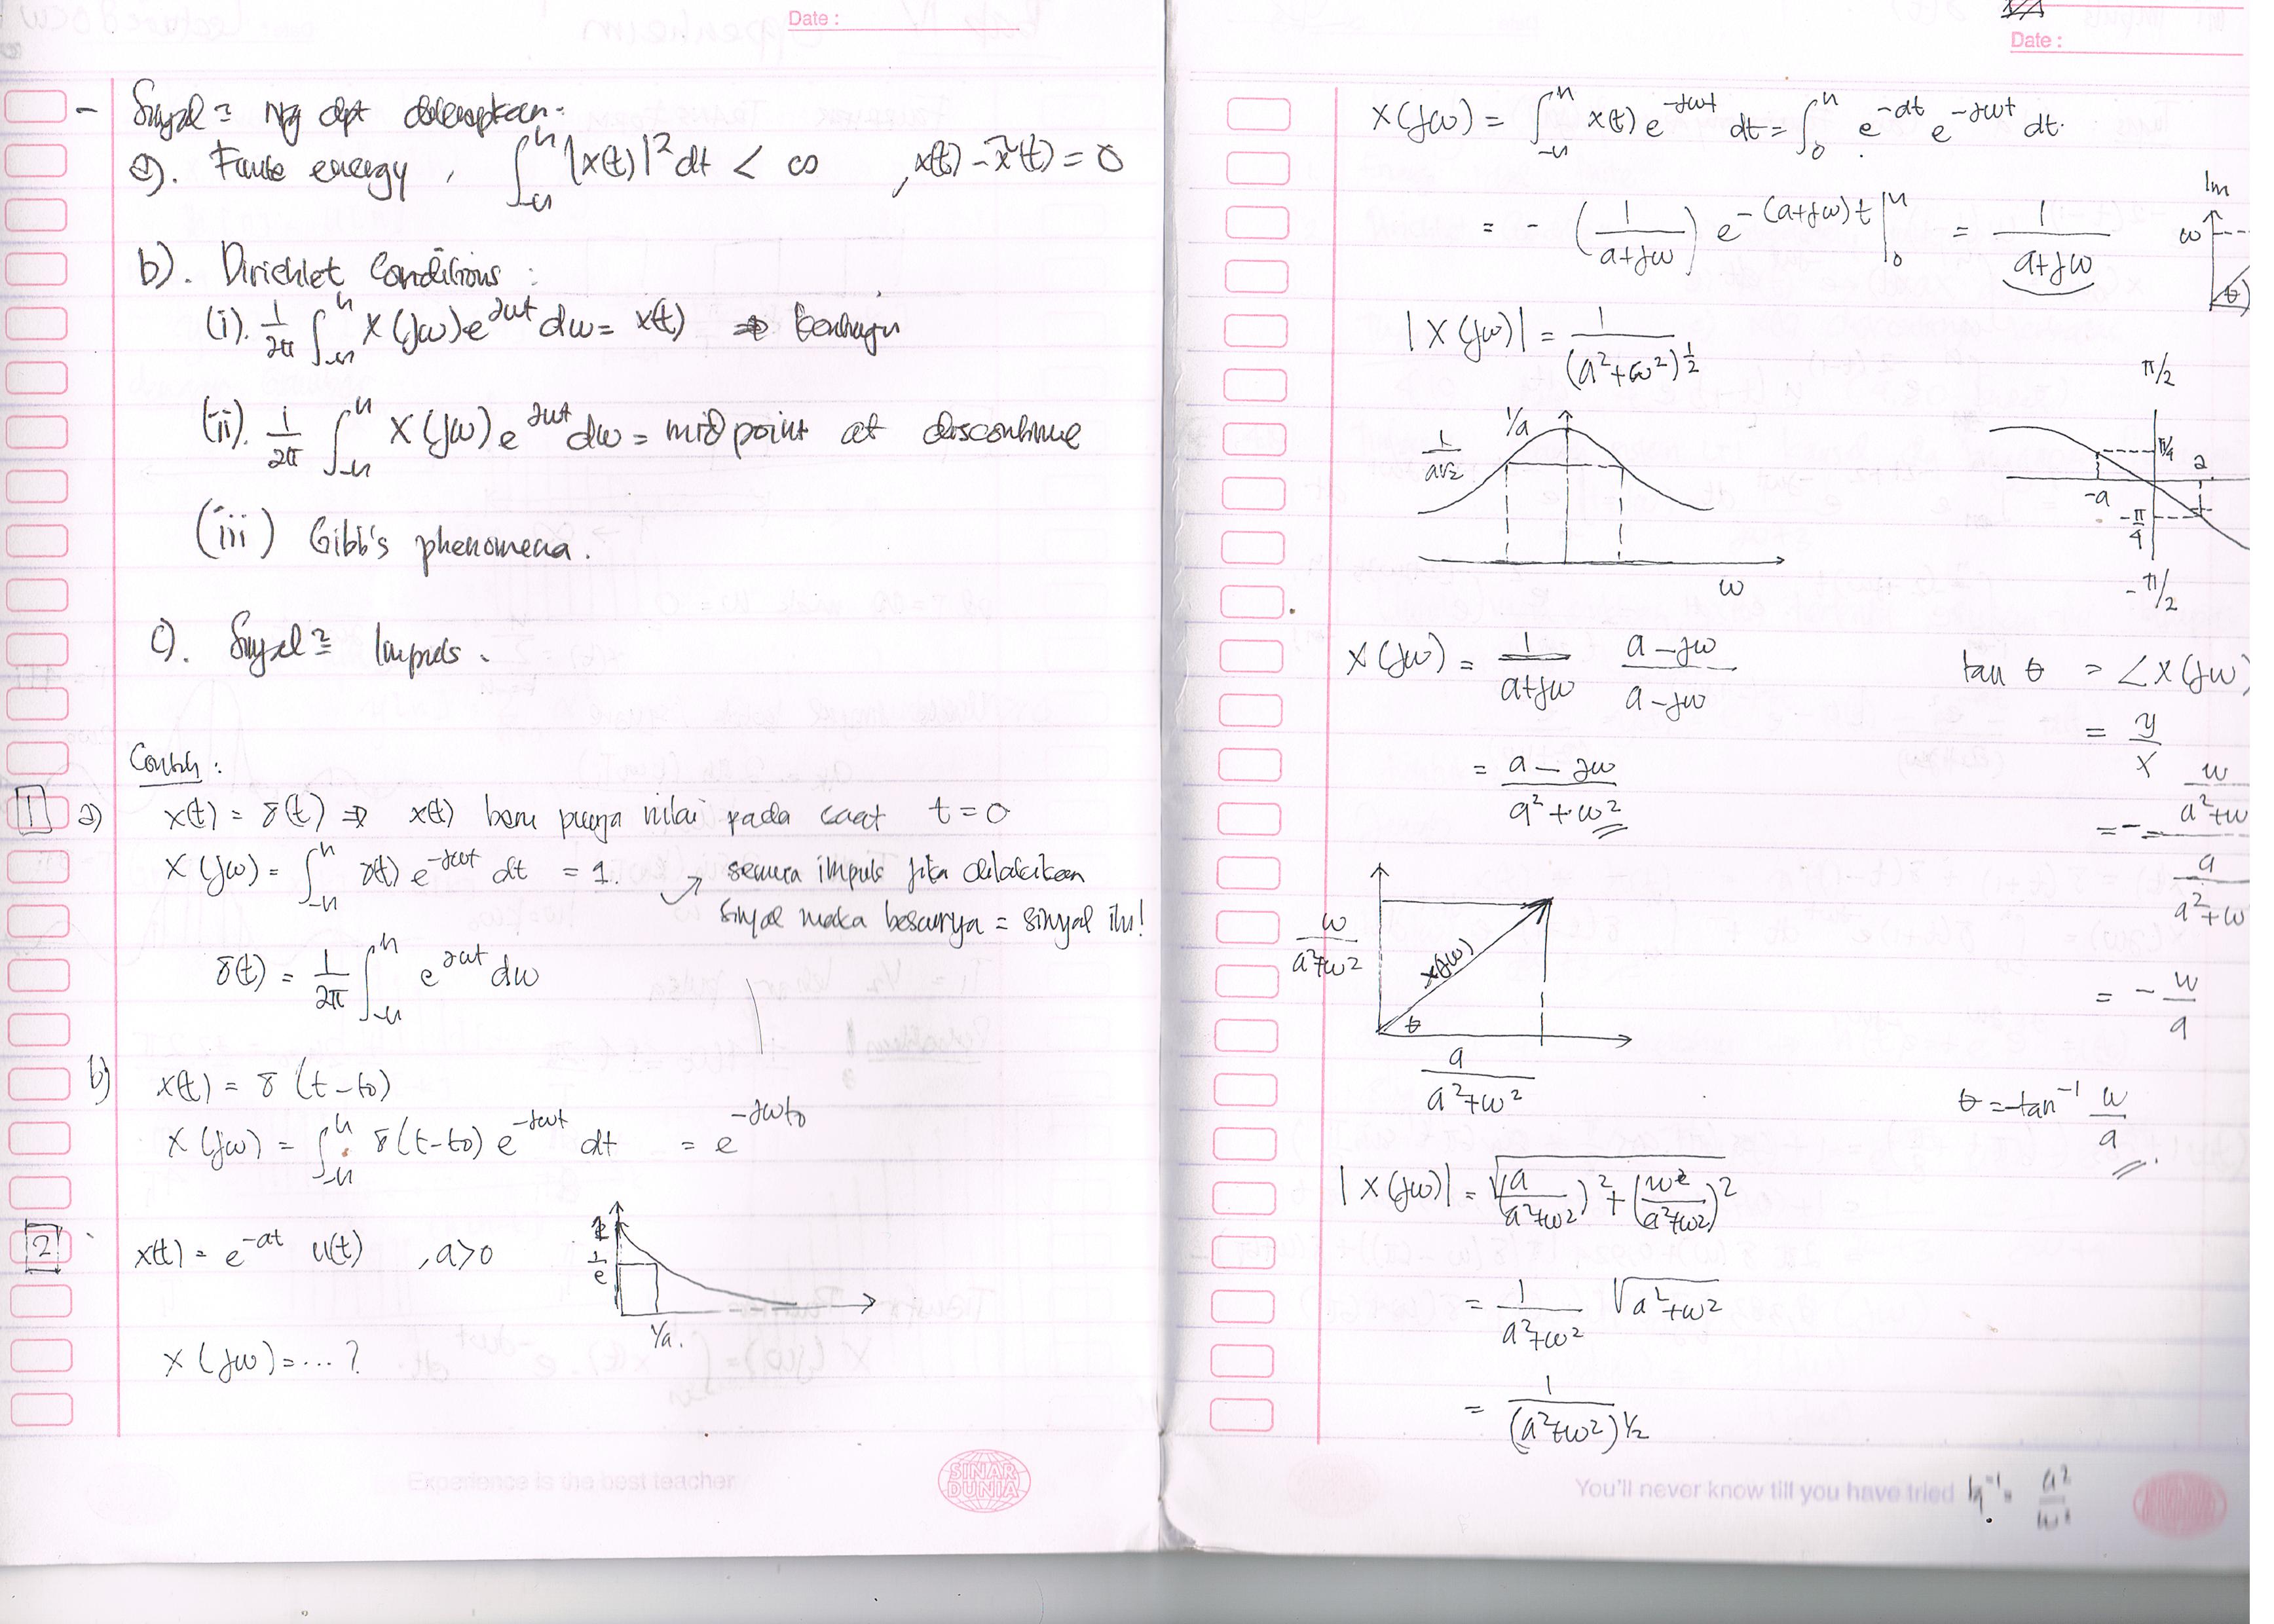 Date :
- Sinyal² yg dpt diterapkan:
a). Finite energy, ∫_{-∞}^{∞} |x(t)|² dt < ∞ , x(t) - x̃(t) = 0
b). Dirichlet Conditions :
(i). 1/2π ∫_{-∞}^{∞} X(jω) e^{jωt} dω = x(t) ⇒
(ii). 1/2π ∫_{-∞}^{∞} X(jω) e^{jωt} dω = mid point at discontinue
(iii) Gibb's phenomena.
c). Sinyal² Impuls.
Contoh :
1 a) x(t) = δ(t) ⇒ x(t) baru punya nilai pada saat t = 0
X(jω) = ∫_{-∞}^{∞} δ(t) e^{-jωt} dt = 1. → semua impuls jika dilalukan
sinyal maka besarnya = sinyal itu!
δ(t) = 1/2π ∫_{-∞}^{∞} e^{jωt} dω
b) x(t) = δ(t-t₀)
X(jω) = ∫_{-∞}^{∞} δ(t-t₀) e^{-jωt} dt = e^{-jωt₀}
2 x(t) = e^{-at} u(t) , a>0
1
1/e
1/a.
X(jω) = ... ?
Experience is the best teacher
SINAR DUNIA
Date :
X(jω) = ∫_{-∞}^{∞} x(t) e^{-jωt} dt = ∫_{0}^{∞} e^{-at} e^{-jωt} dt.
= - (1/(a+jω)) e^{-(a+jω)t} |_{0}^{∞} = 1/(a+jω)
Im
ω
θ
|X(jω)| = 1/(a²+ω²)^{1/2}
1/a
1/a√2
ω
π/2
π/4
-a
a
-π/4
-π/2
X(jω) = 1/(a+jω) (a-jω)/(a-jω)
= (a-jω)/(a²+ω²)
tan θ = ∠X(jω)
= y/x
= - (ω/(a²+ω)/(a/(a²+ω
= - ω/a
ω/(a²+ω²)
X(jω)
θ
a/(a²+ω²)
θ = tan⁻¹ ω/a
|X(jω)| = √((a/(a²+ω²))² + (ω²/(a²+ω²))²)
= 1/(a²+ω²) √(a²+ω²)
= 1/(a²+ω²)^{1/2}
You'll never know till you have tried